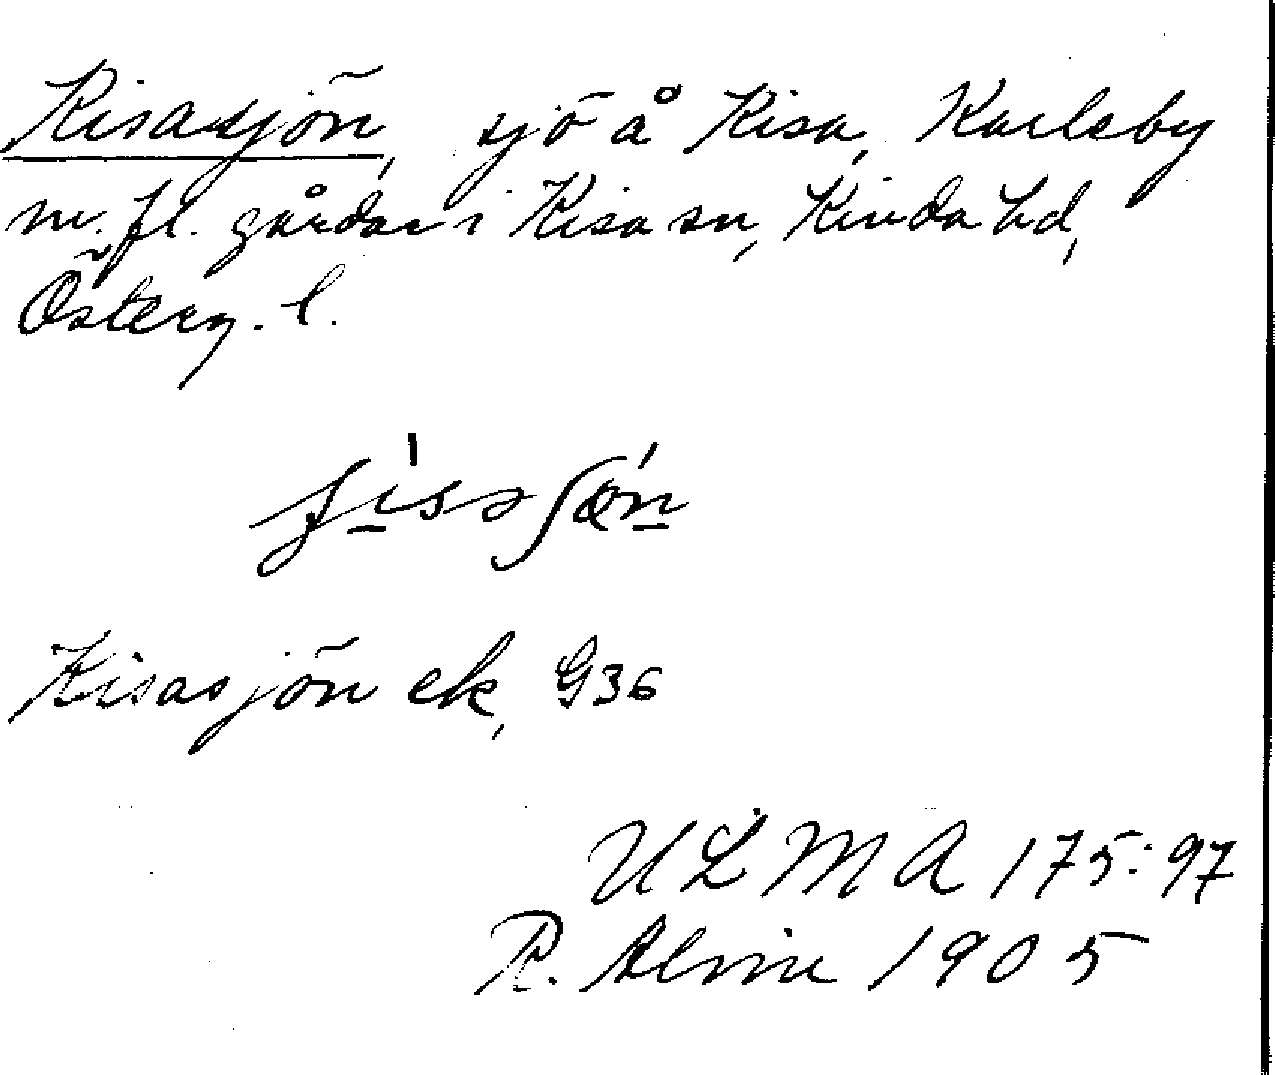 Kisasjön, sjö å Kisa, Karlsby
m. fl. gårdar i Kisa sn, Kinda hd,
Österg. l.
Kisasjön ek, G36
ULMA 175:97
R. 1905